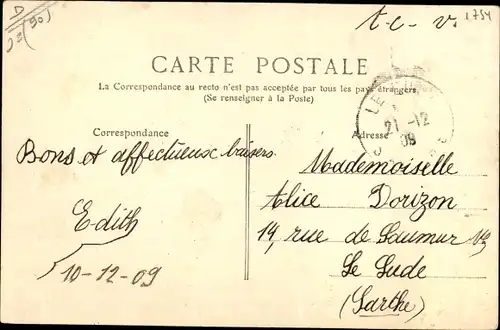 t.c.v.
1754
D
(90)
CARTE POSTALE
La Correspondance au recto n'est pas acceptée par tous les pays étrangers
(Se renseigner à la Poste)
LE
21-12
09
Correspondance
Adresse
Bons et affectueux baisers
Edith
10-12-09
Mademoiselle
Alice Dorizon
14, rue de Saumur
Le Lude
(Sarthe)